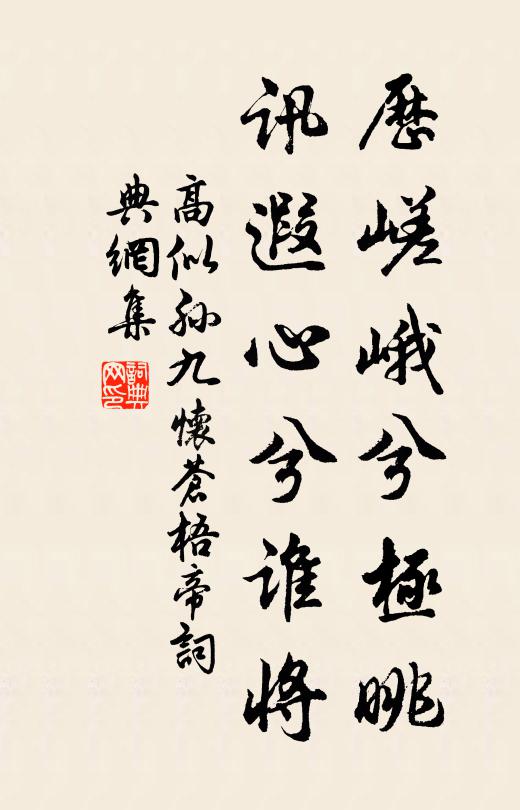 歷嵯峨兮極眺
訊遐心兮誰將
高似孫九懷蒼梧帝詞
典網集
詞典网印